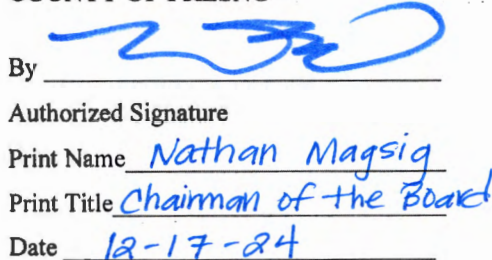 COUNTY OF FRESNO
By
Authorized Signature
Print Name Nathan Magsig
Print Title Chairman of the Board
Date 12-17-24